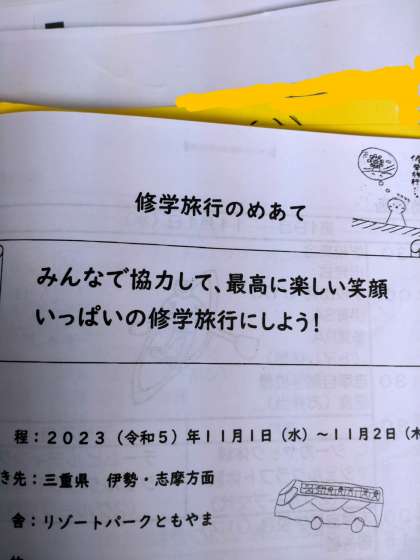 修学旅行のめあて
みんなで協力して、最高に楽しい笑顔
いっぱいの修学旅行にしよう!
程:2023(令和5)年11月1日(水)~11月2日(木
き先:三重県 伊勢・志摩方面
舎:リゾートパークともやま